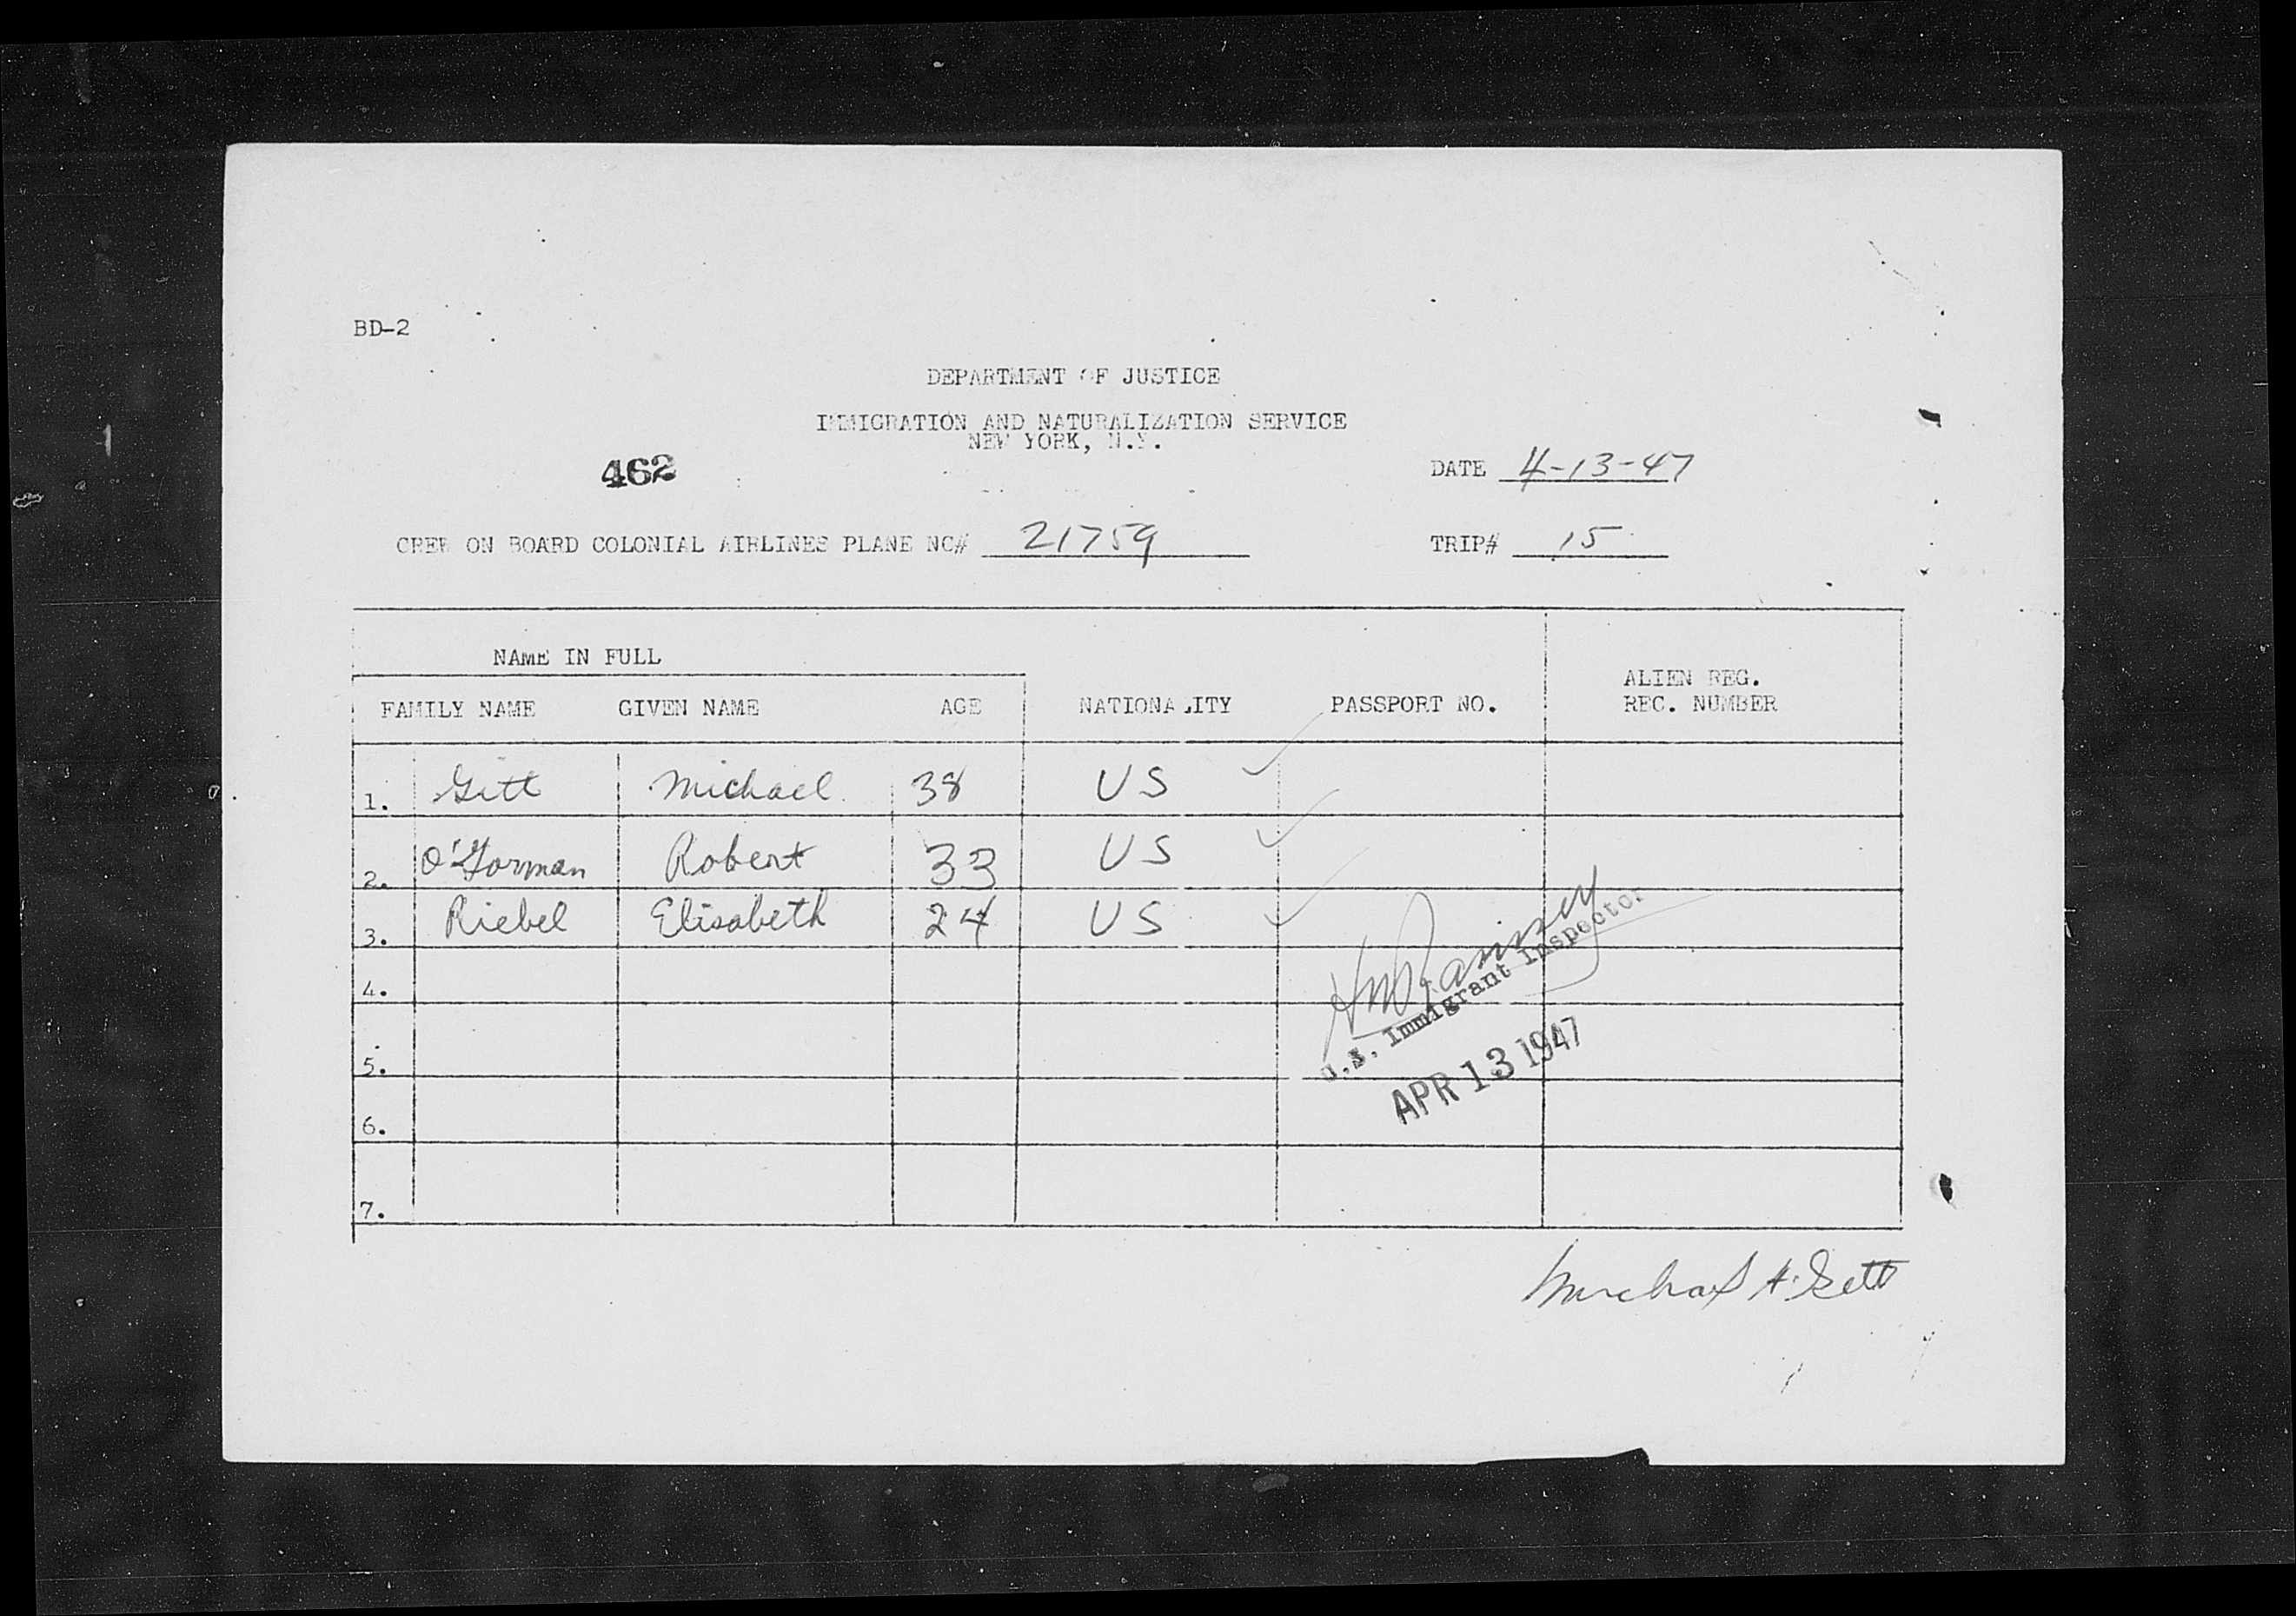 BD-2
DEPARTMENT OF JUSTICE
IMMIGRATION AND NATURALIZATION SERVICE
NEW YORK, N.Y.
462
DATE 4-13-47
CREW ON BOARD COLONIAL AIRLINES PLANE NC# 21759 TRIP# 15
NAME IN FULL
ALIEN REG.
FAMILY NAME GIVEN NAME AGE NATIONALITY PASSPORT NO. REC. NUMBER
1. Gitt Michael 38 US ✓
2. O'Gorman Robert 33 US ✓
3. Riebel Elisabeth 24 US ✓
4.
5.
6.
7.
U.S. Immigrant Inspector
APR 13 1947
Michael A. Gitt